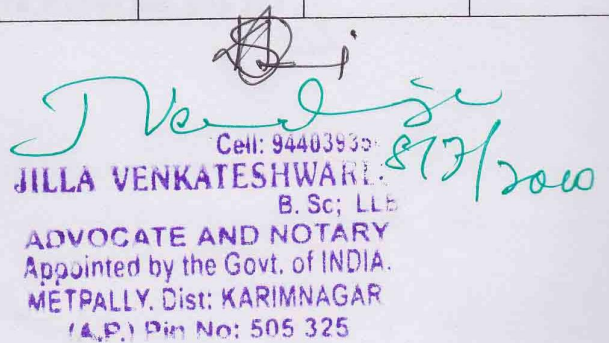 Cell: 9440393
JILLA VENKATESHWARL
B. Sc; LLB
ADVOCATE AND NOTARY
Appointed by the Govt. of INDIA.
METPALLY. Dist: KARIMNAGAR
(A.P.) Pin No: 505 325